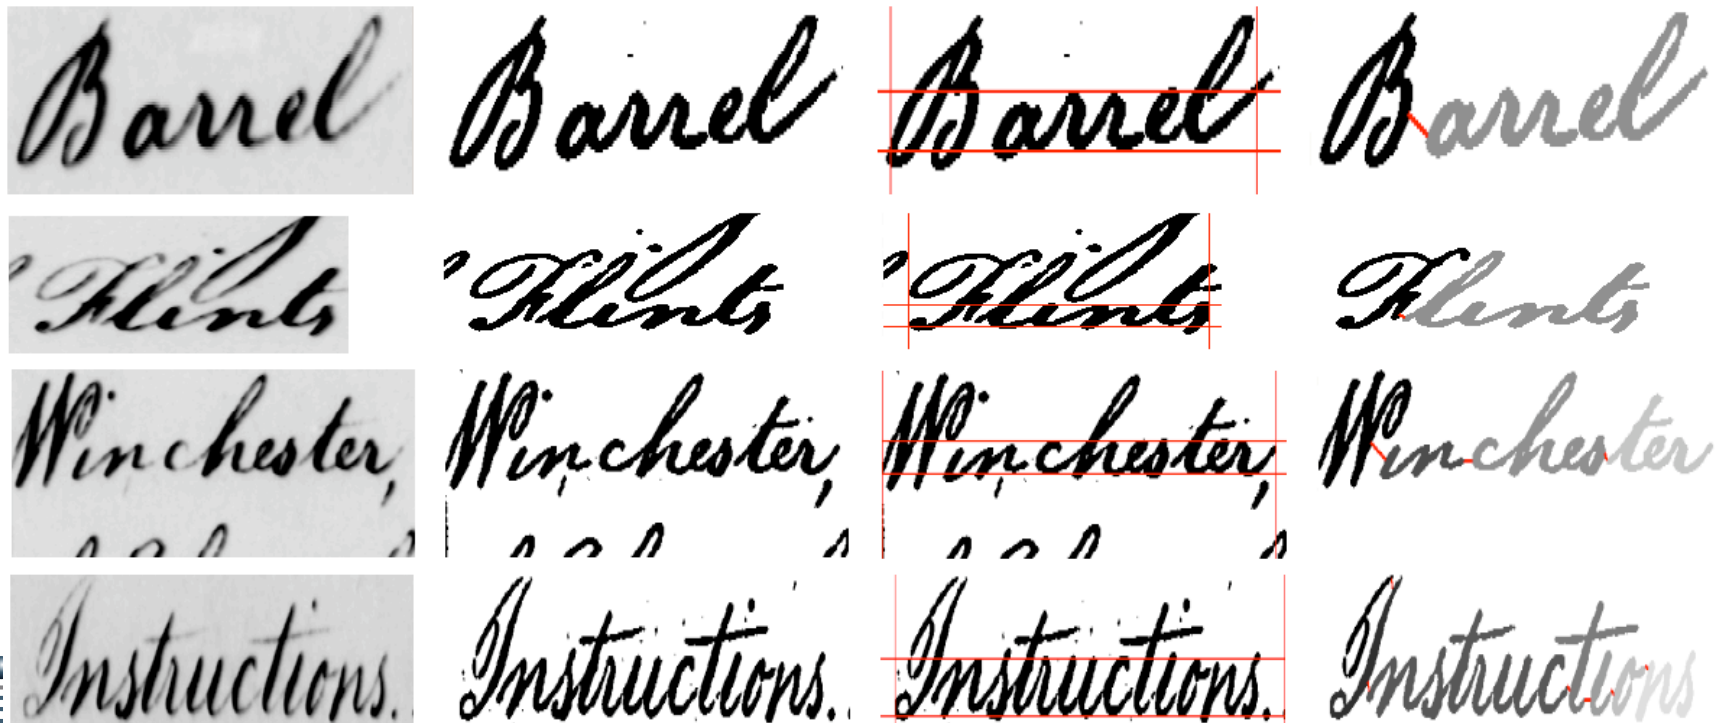 Barrel Barrel Barrel Barrel
Flints Flints Flints Flints
Winchester, Winchester, Winchester, Winchester
Instructions. Instructions. Instructions. Instructions